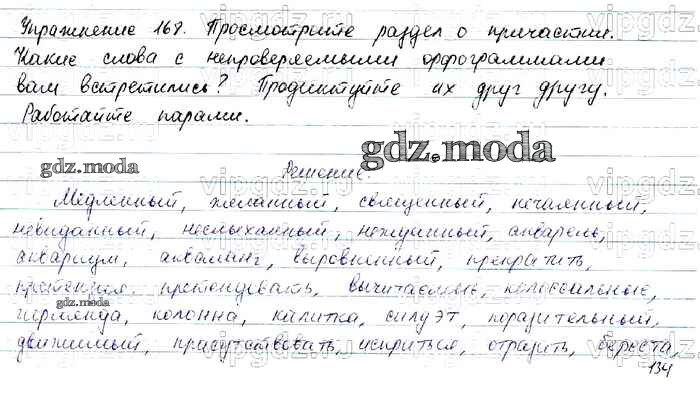 Упражнение 168. Просмотрите раздел о причастии.
Какие слова с непроверяемыми орфограммами
вам встретились? Продиктуйте их друг другу.
Работайте парами.
gdz.moda
gdz.moda
Решение.
Медленный, желанный, священный, нечаянный,
невиданный, неслыханный, нежданный, акварель,
аквариум, акваланг, выровненный, прекратить,
претензия, претендовать, вычитаемые,
gdz.moda
гирлянда, колонна, калитка, силуэт, поразительный,
движимый, присутствовать, испариться, отразить, береста,
134
vipgdz